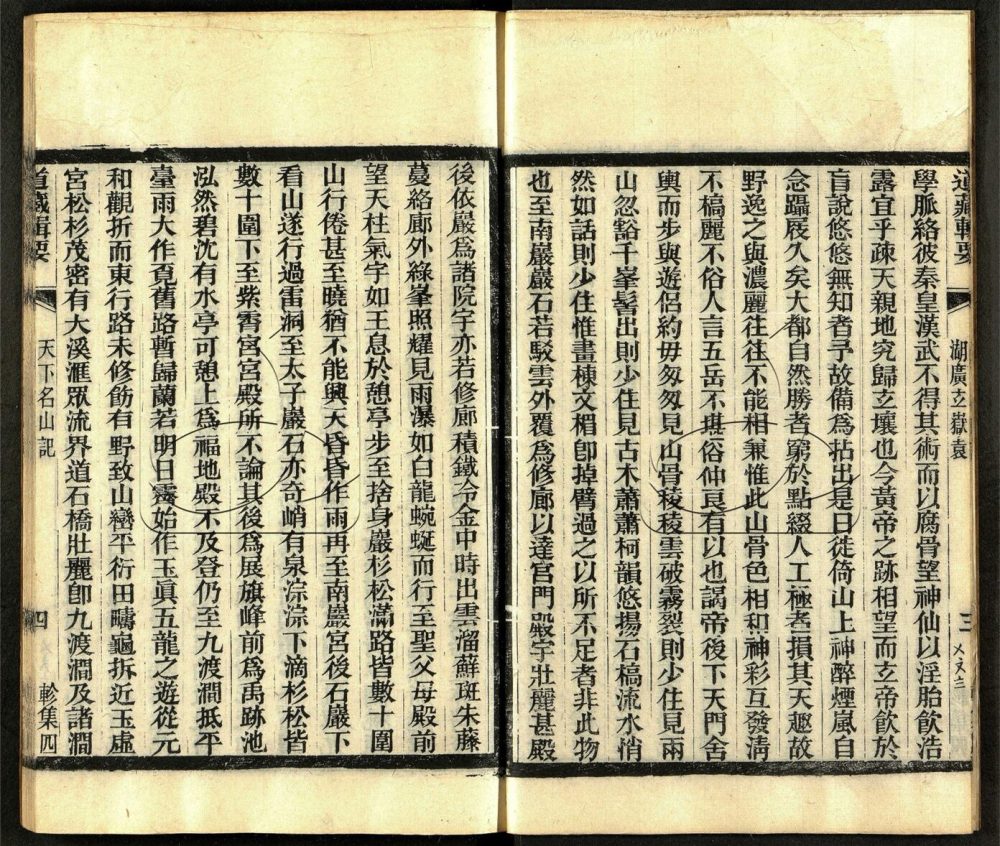 道藏輯要
湖廣玄嶽袁
三
學脈絡彼秦皇漢武不得其術而以腐骨望神仙以淫胎飲浩
露宜乎疎天親地究歸玄壤也今黃帝之跡相望而玄帝飲於
盲說悠悠無知者予故備爲拈出是日徒倚山上神醉煙嵐自
念躡屐久矣大都自然勝者窮於點綴人工極者損其天趣故
野逸之與濃麗往往不能相兼惟此山骨色相和神彩互發淸
不槁麗不俗人言五岳不堪俗仲艮有以也謁帝後下天門舍
輿而步與遊侶約毋匆匆見山骨稜稜雲破霧裂則少住見兩
山忽豁千峯髻出則少住見古木蕭蕭柯韻悠揚石槁流水悄
然如話則少住惟畫棟文楣卽掉臂過之以所不足者非此物
也至南巖巖石若駁雲外覆爲修廊以達宮門殿宇壯麗甚殿
後依巖爲諸院宇亦若修廊積鐵冷金中時出雲溜蘚斑朱藤
蔓絡廊外綠峯照耀見雨瀑如白龍蜿蜒而行至聖父母殿前
望天柱氣字如王息於憩亭步至捨身巖杉松滿路皆數十圍
山行倦甚至曉猶不能興天昏昏作雨再至南巖宮後石巖下
看山遂行過雷洞至太子巖石亦奇峭有泉淙淙下滴杉松皆
數十圍下至紫霄宮宮殿所不論其後爲展旗峰前爲禹跡池
泓然碧沈有水亭可憩上爲福地殿不及登仍至九渡澗抵平
臺雨大作覔舊路暫歸蘭若明日霽始作玉眞五龍之遊從元
和觀折而東行路未修飭有野致山巒平衍田疇龜拆近玉虛
宮松杉茂密有大溪滙眾流界道石橋壯麗卽九渡澗及諸澗
道藏輯要
天下名山記
四
軫集四